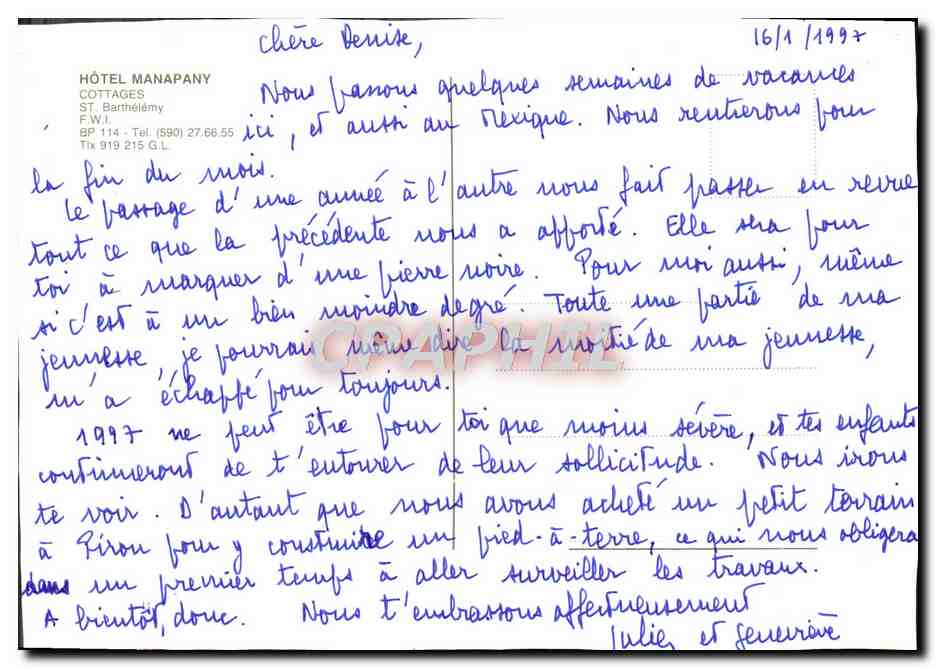 Chère Denise,
16/1/1997
HÔTEL MANAPANY
COTTAGES
ST. Barthélémy
F.W.I.
BP 114 - Tel. (590) 27.66.55
Tlx 919 215 G.L.
Nous passons quelques semaines de vacances
ici, et aussi au Mexique. Nous rentrerons pour
la fin du mois.
Le passage d'une année à l'autre nous fait passer en revue
tout ce que la précédente nous a apporté. Elle sera pour
toi à marquer d'une pierre noire. Pour moi aussi, même
si c'est à un bien moindre degré. Toute une partie de ma
jeunesse, je pourrai même dire la moitié de ma jeunesse,
m'a échappé pour toujours.
1997 ne peut être pour toi que moins sévère, et tes enfants
continueront de t'entourer de leur sollicitude. Nous irons
te voir. D'autant que nous avons acheté un petit terrain
à Pirou pour y construire un pied-à-terre, ce qui nous obligera
dans un premier temps à aller surveiller les travaux.
A bientôt, donc. Nous t'embrassons affectueusement
et Geneviève
CPAPHIL